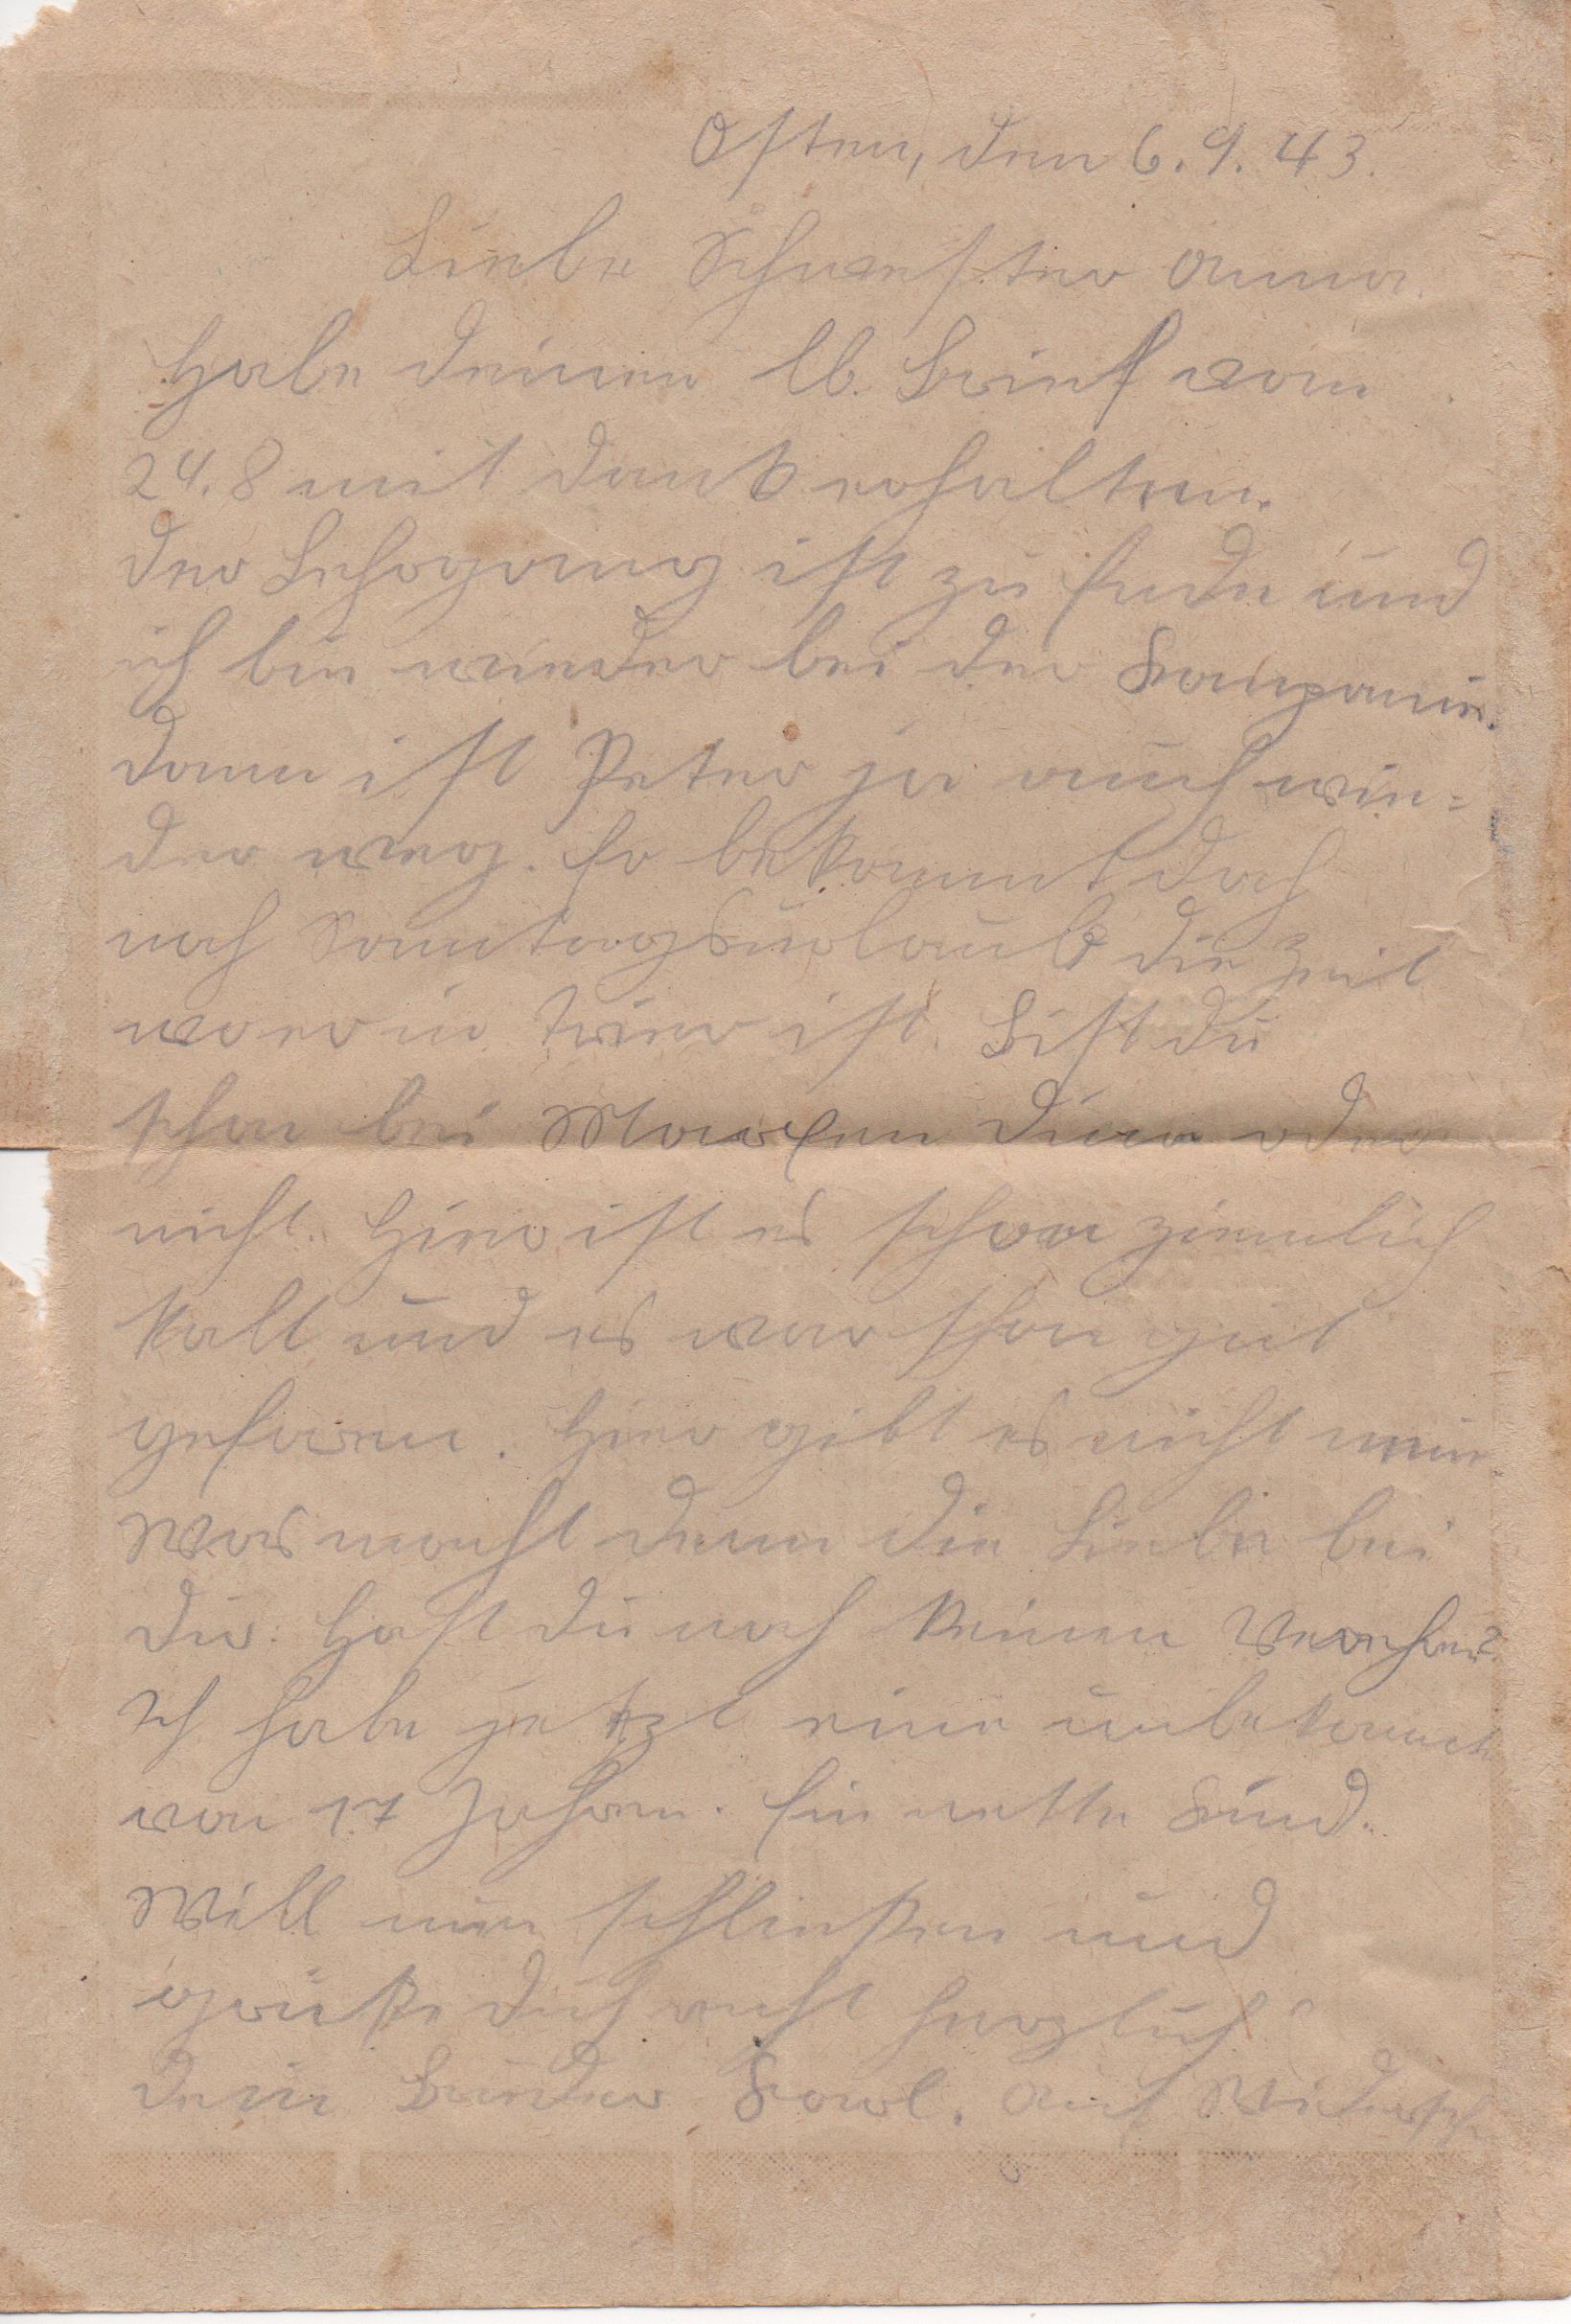 Osten, den 6.9.43.
Liebe Schwester Anna.
Habe deinen lb. Brief vom
24.8 mit dank erhalten.
der Lehrgang ist zu Ende und
ich bin wieder bei der Kompanie.
dann ist Peter ja auch wie=
der weg. Er bekommt doch
noch Sonntagsurlaub die Zeit
wo er in Trier ist. Bist du
schon bei dran oder
nicht. Hier ist es schon ziemlich
kalt und es war schon gut
gefroren. Hier gibt es nicht
Was macht denn die Liebe bei
dir. Hast du noch keinen
Ich habe jetzt eine
von 17 Jahren. Ein nette Kind.
Will nun schließen und
grüße dich recht herzlich
dein Bruder Karl. Auf Widerseh